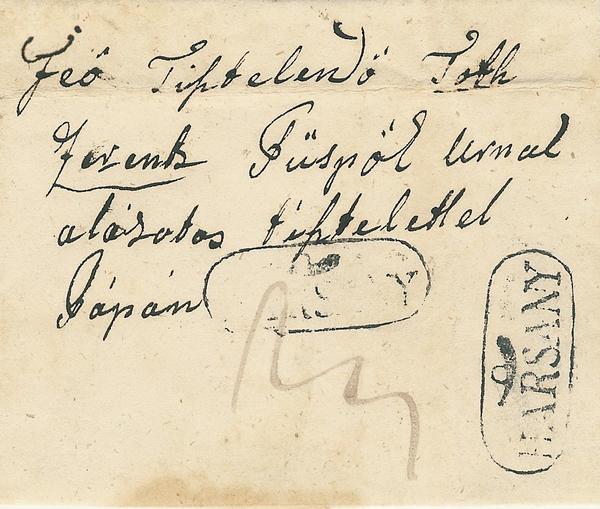 Feő Tiſtelendö Toth
Ferentz Püspök Urnal
alázatos tiſtelettel
Pápán
HARSANY